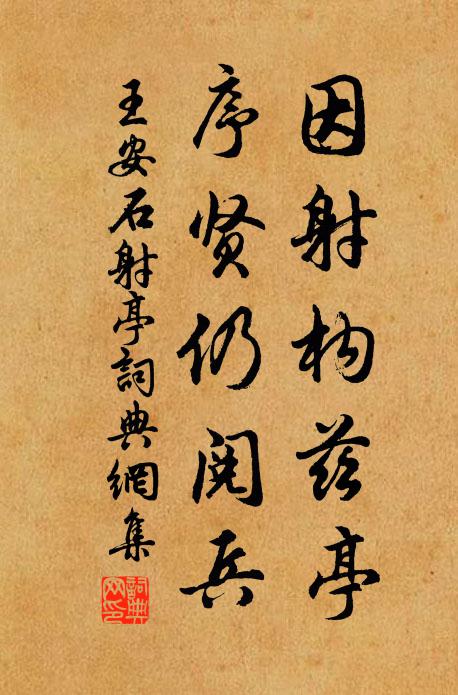 因射构茲亭
序贤仍阅兵
王安石射亭詞典網集
詞典网印